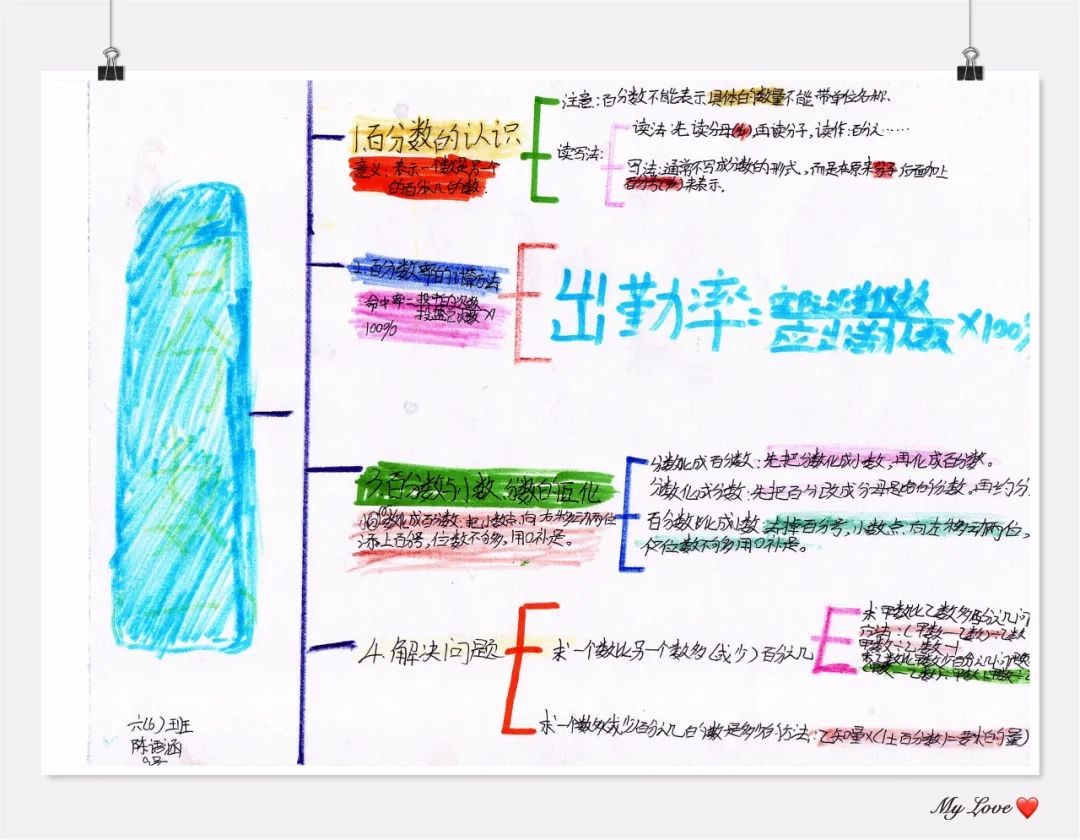 百分数(一)
1.百分数的认识
意义:表示一个数是另一个
的百分几的数.
注意:百分数不能表示具体的数量不能带单位名称.
读写法:
读法:先读分母(%)再读分子,读作:百分之……
写法:通常不写成分数的形式,而是在原来分子后面加上
百分号(%)来表示.
2.百分数率的计算方法
命中率=投中的次数/投篮总次数×
100%
出勤率:实际出勤人数/应出勤人数×100%
3.百分数与小数、分数的互化
小数化成百分数:把小数点向右移动两位
添上百分号,位数不够,用0补足。
分数化成百分数:先把分数化成小数,再化成百分数。
分数化成分数:先把百分改成分母是100的分数,再约分
百分数化成小数 去掉百分号,小数点向左移动两位,
位数不够用0补足。
4.解决问题
求一个数比另一个数多(或少)百分之几
求甲数比乙数多百分之几问
方法:(甲数-乙数)÷乙数
甲数÷乙数-1
求一个数多或少百分之几的数是多少的方法:已知量×(1±百分数)=要求的量)
六(6)班
陈语涵
My Love